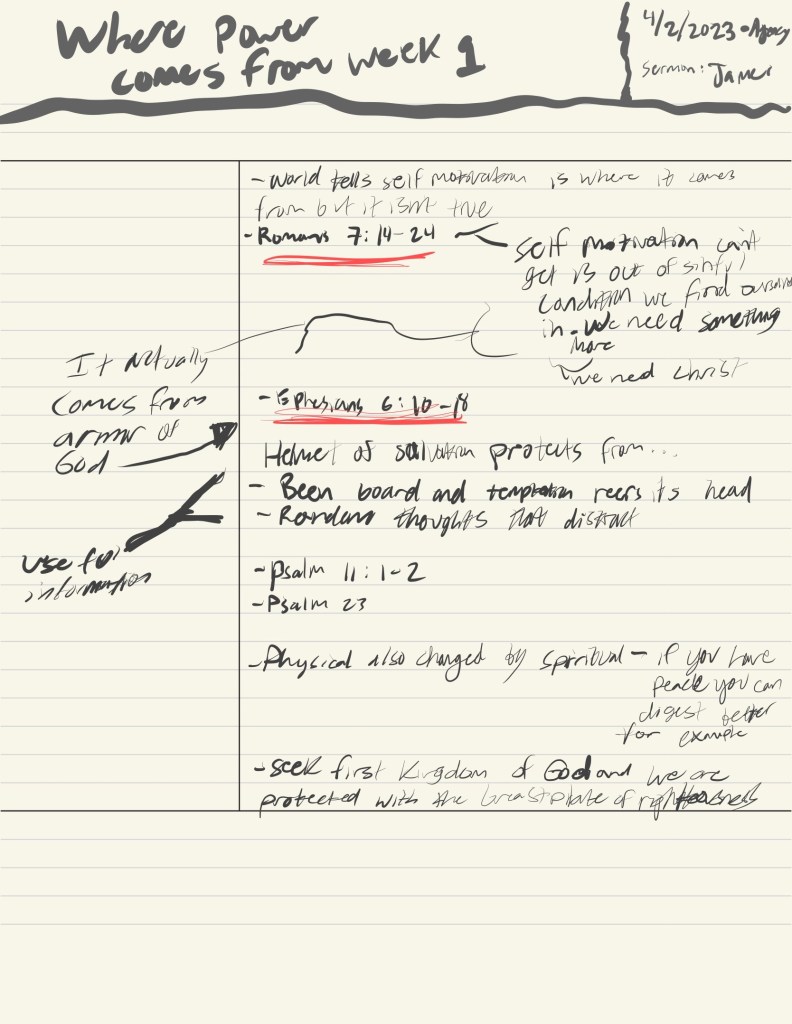 Where Power
comes from week 1
4/2/2023 -
Sermon: James
- World tells self motivation is where it comes
from but it isnt true
- Romans 7:14-24
self motivation can't
get us out of sinful
condition we find ourselves
in. we need something
more
we need christ
It Actually
comes from
armor of
God
- Ephesians 6:10-18
Helmet of salvation protects from...
- Been board and temptation reers its head
- Random thoughts that distract
use for
information
- Psalm 11:1-2
- Psalm 23
- Physical also changed by spiritual - if you have
peace you can
digest better
for example
- seek first Kingdom of God and we are
protected with the breastplate of righteousness